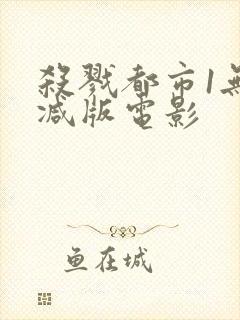 殺戮都市1無
減版電影
鱼在城